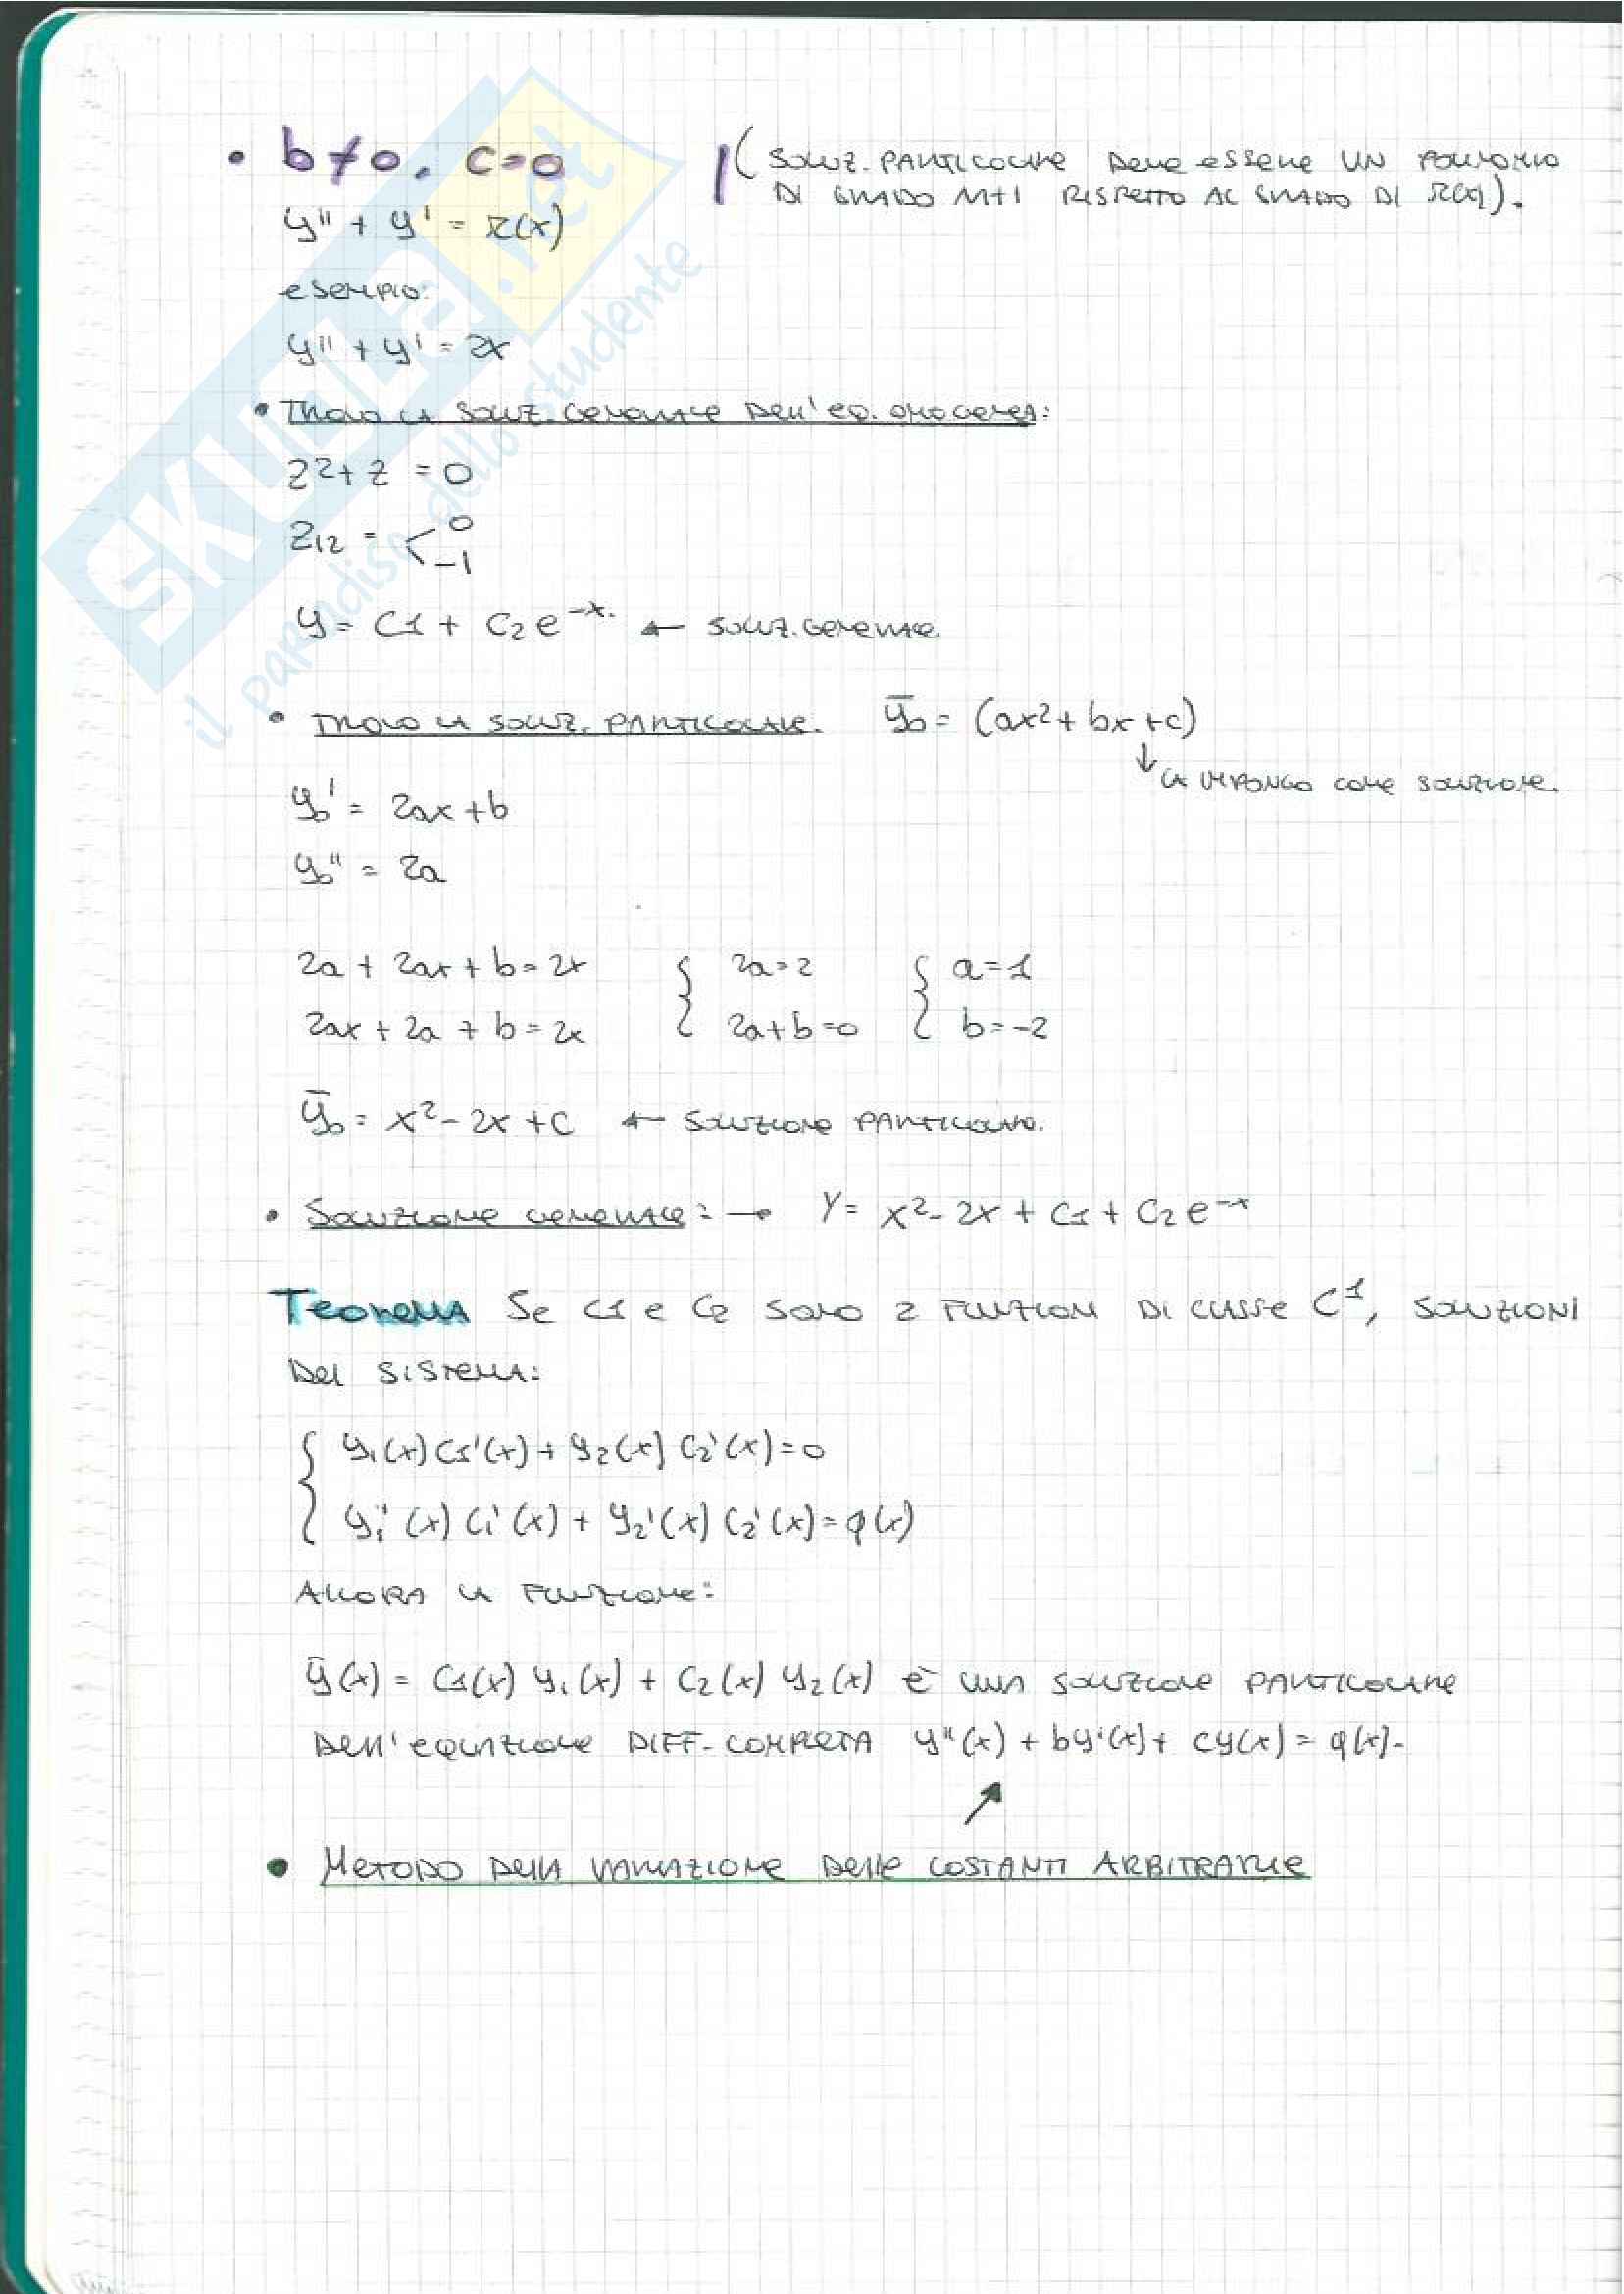 • b≠0, c=0
(SOLUZ. PARTICOLARE DEVE ESSERE UN POLINOMIO
DI GRADO M+1 RISPETTO AL GRADO DI r(x)).
y'' + y' = r(x)
ESEMPIO:
y'' + y' = 2x
• TROVO LA SOLUZ. GENERALE DELL'EQ. OMOGENEA:
z² + z = 0
z12 = < 0
-1
y = C1 + C2 e^-x. ← SOLUZ. GENERALE.
• TROVO LA SOLUZ. PARTICOLARE. ȳ0 = (ax² + bx + c)
↓ LA IMPONGO COME SOLUZIONE.
y0' = 2ax + b
y0'' = 2a
2a + 2ax + b = 2x { 2a = 2 { a = 1
2ax + 2a + b = 2x { 2a + b = 0 { b = -2
ȳ0 = x² - 2x + C ← SOLUZIONE PARTICOLARE.
• SOLUZIONE GENERALE: → Y = x² - 2x + C1 + C2 e^-x
TEOREMA SE C1 E C2 SONO 2 FUNZIONI DI CLASSE C¹, SOLUZIONI
DEL SISTEMA:
{ y1(x) C1'(x) + y2(x) C2'(x) = 0
{ y1'(x) C1'(x) + y2'(x) C2'(x) = q(x)
ALLORA LA FUNZIONE:
ȳ(x) = C1(x) y1(x) + C2(x) y2(x) È UNA SOLUZIONE PARTICOLARE
DELL'EQUAZIONE DIFF. COMPLETA y''(x) + by'(x) + cy(x) = q(x).
↗
• METODO DELLA VARIAZIONE DELLE COSTANTI ARBITRARIE
SKUOLA.net
il paradiso dello studente